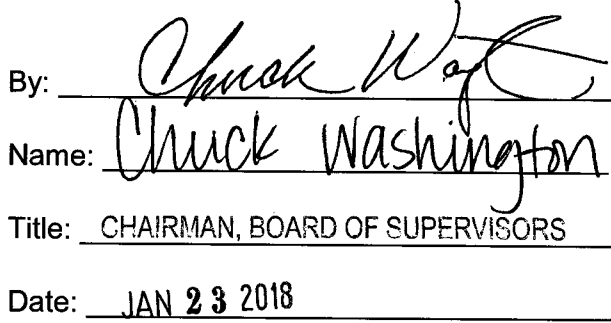 By: Chuck Wa
Name: Chuck Washington
Title: CHAIRMAN, BOARD OF SUPERVISORS
Date: JAN 23 2018